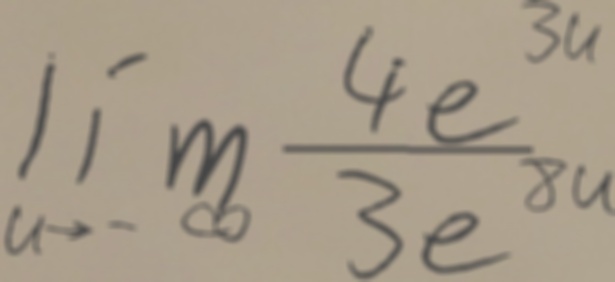 \lim_{u \to -\infty} \frac{4e^{3u}}{3e^{8u}}